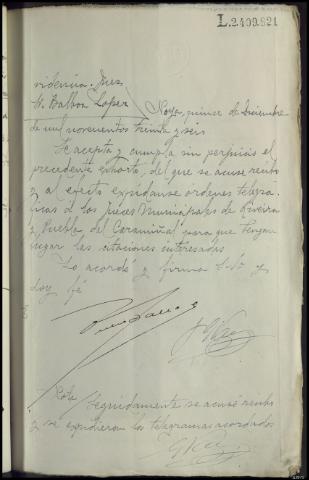 L.2409.821
videncia. Juez
Sr. Balboa Lopez
Noya, primer de Diciembre
de mil novecientos treinta y seis
Se acepta y cumpla sin perjuicio el
precedente exhorto, del que se acuse recibo
y al efecto expidanse ordenes telegra-
ficas á los Jueces Municipales de Riveira
y Puebla del Caramiñal para que tengan
lugar las citaciones interesadas
Lo acordó y firma S.Sª y
doy fé
Nota
Seguidamente se acusó recibo
y se expidieron los telegramas acordados